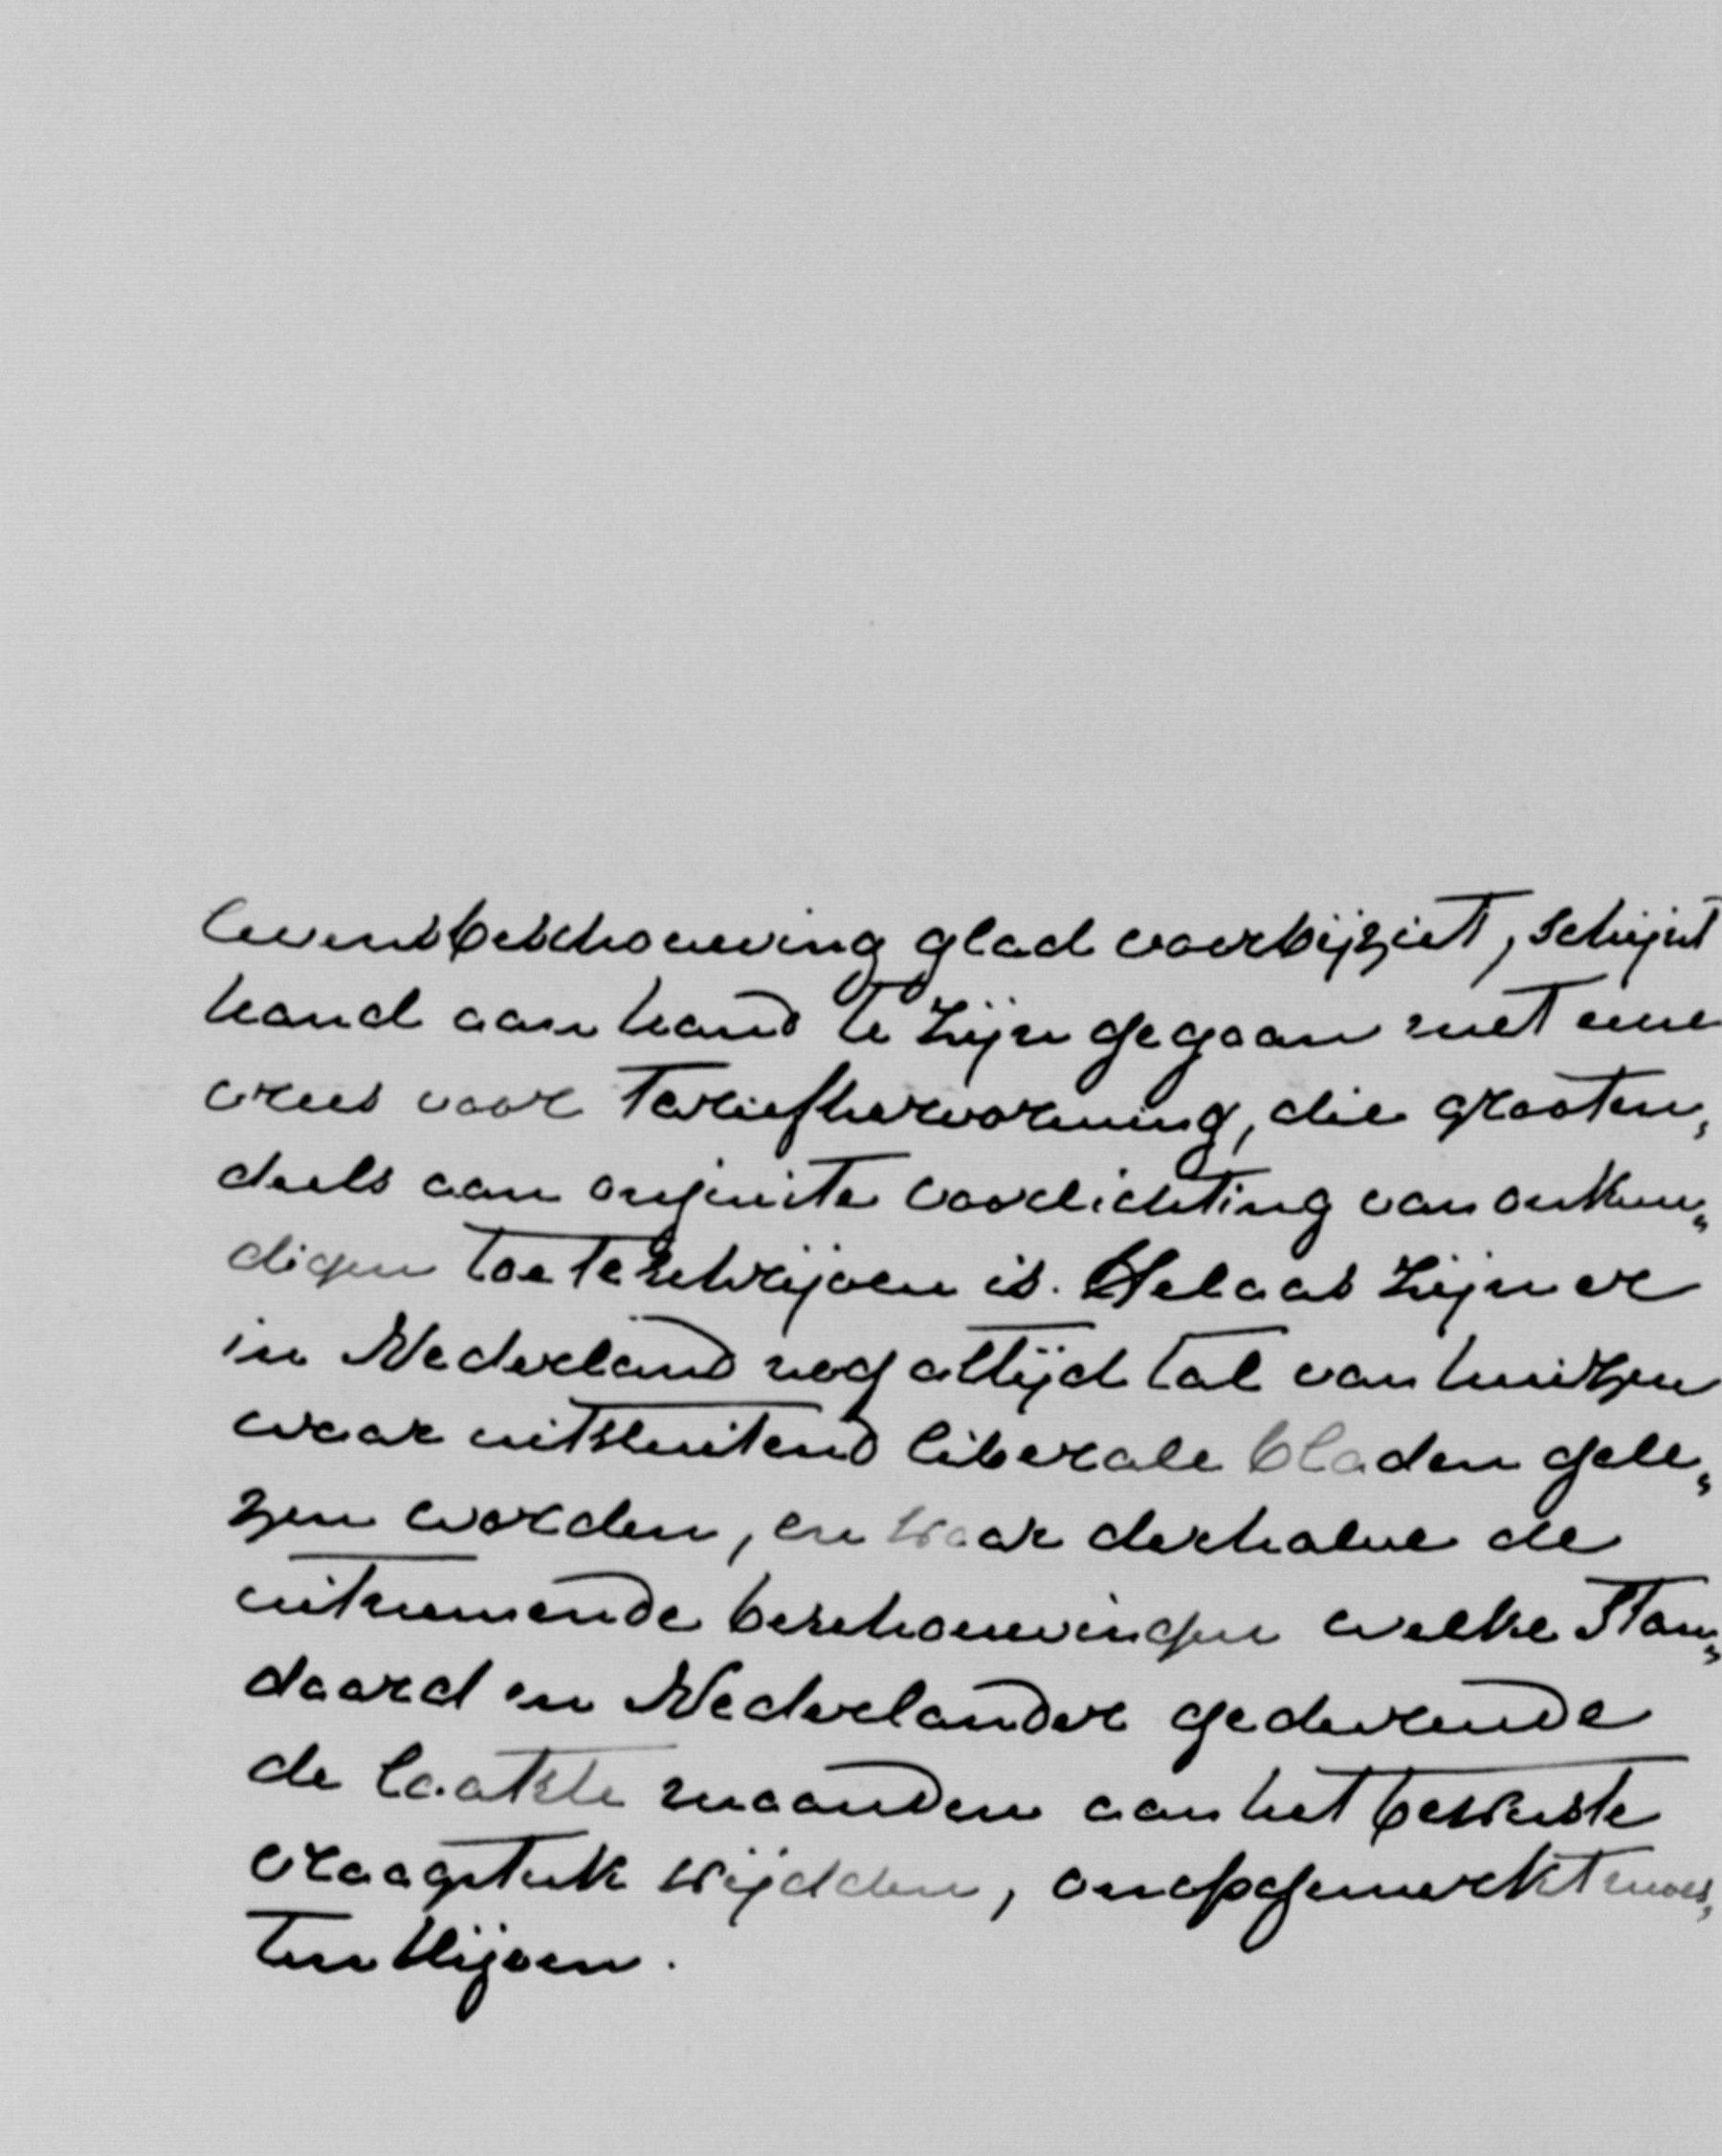 levensbeschouwing glad voorbijziet, schijnt
hand aan hand te zijn gegaan met eene
vrees voor Tariefhervorming, die grooten„
deels aan onjuiste voorlichting van onkun„
digen toe te schrijven is. Helaas zijn er
in Nederland nog altijd tal van huizen
waar uitsluitend liberale bladen gele„
zen worden, en waar derhalve de
uitnemende beschouwingen welke Stan„
daard en Nederlander gedurende
de laatste maanden aan het bewuste
vraagstuk wijdden, onopgemerkt moes„
ten blijven.